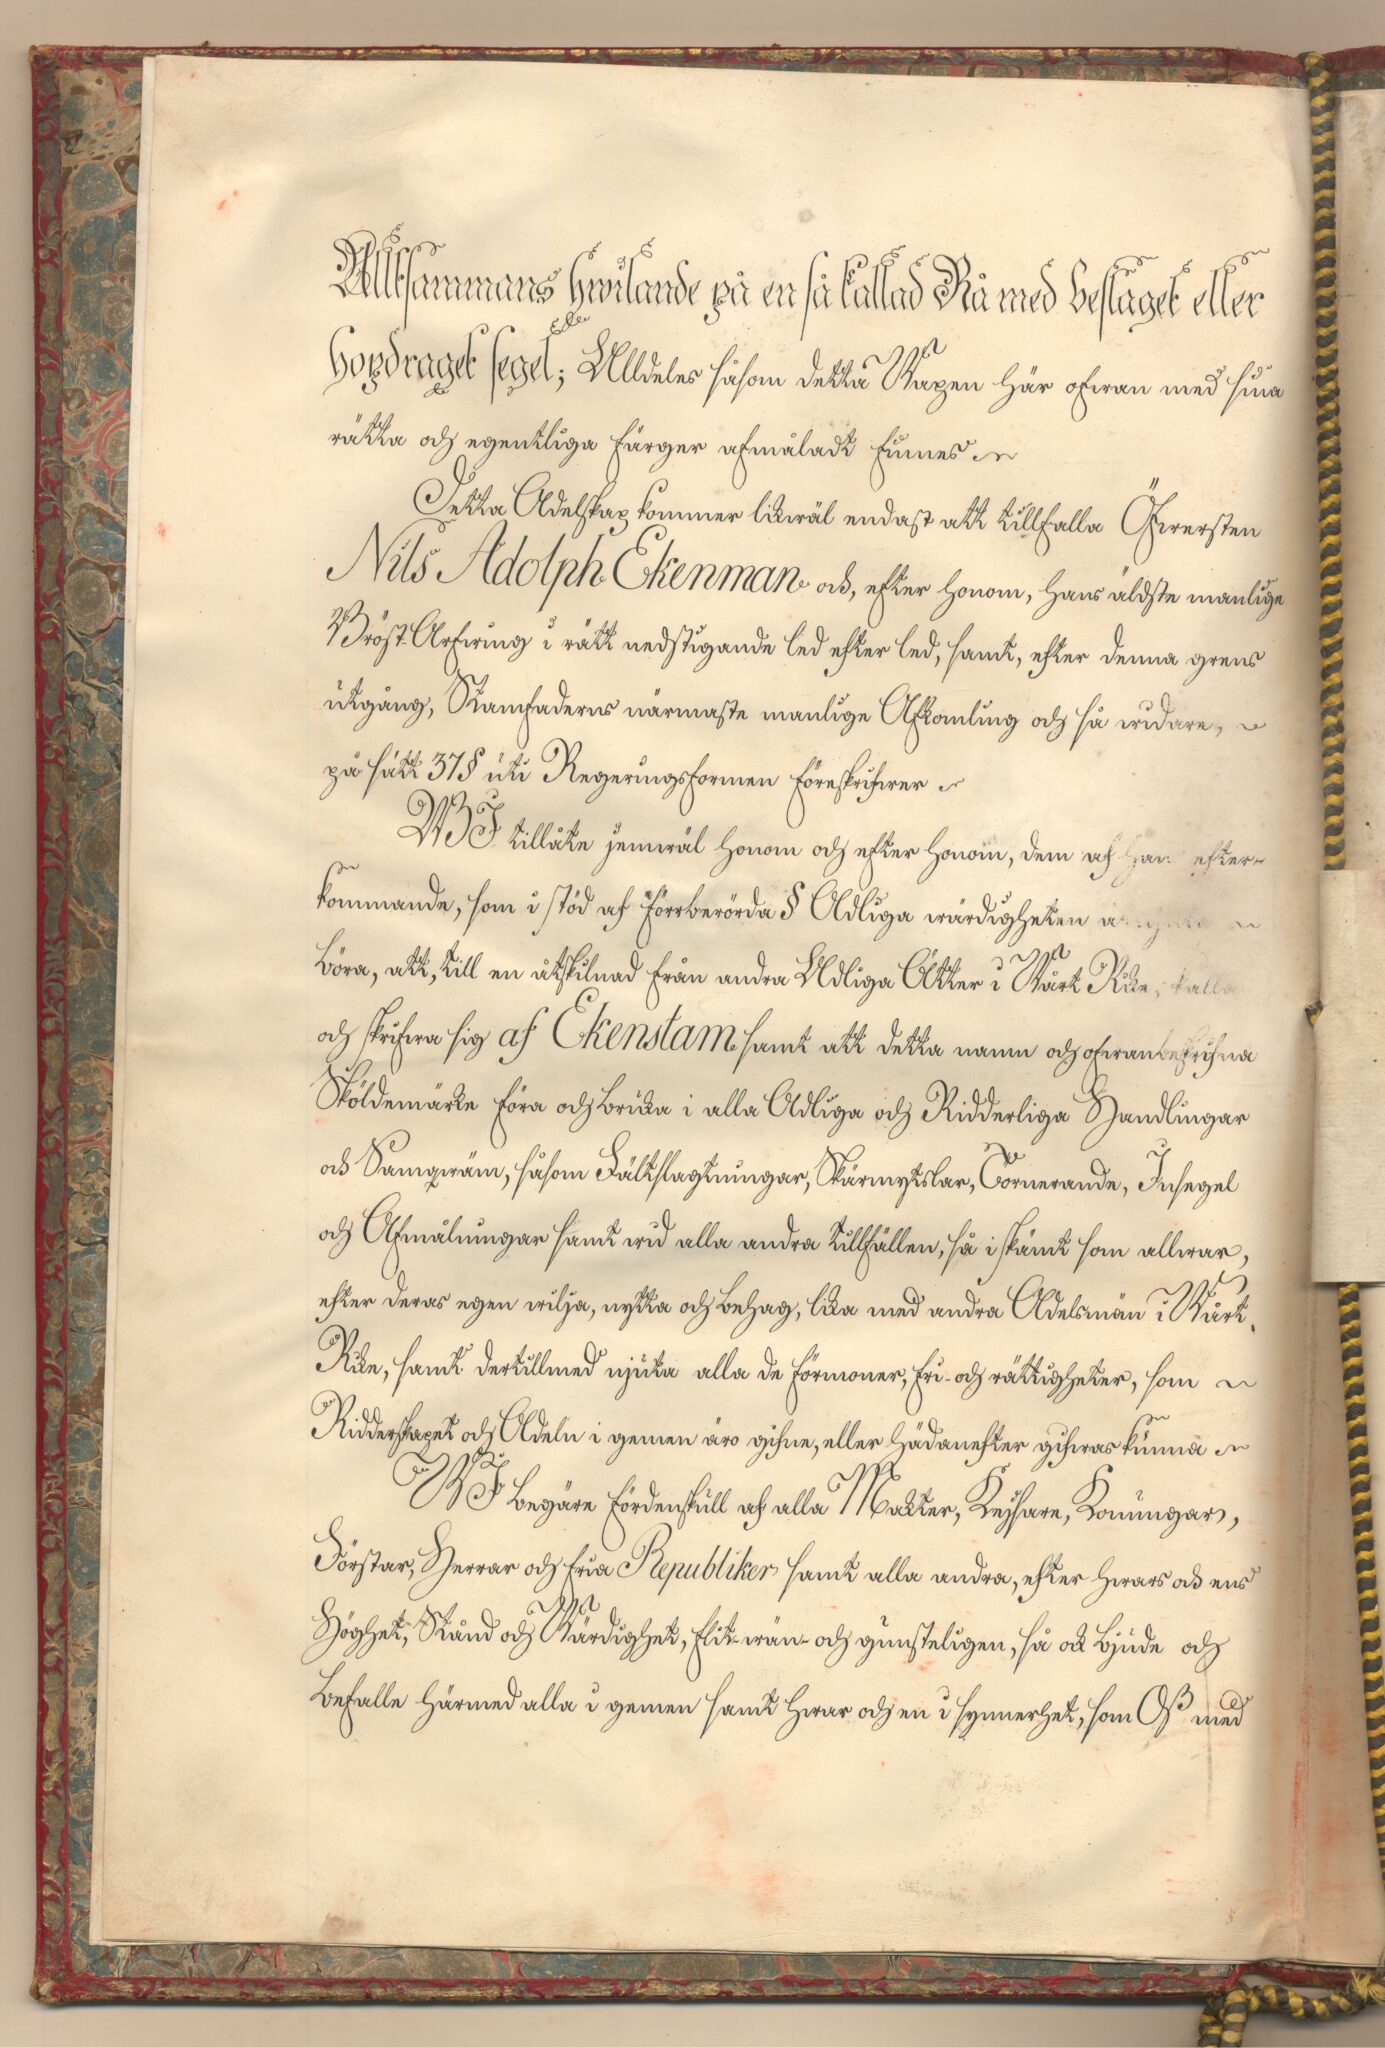 Alltsammans hwilande på en så kallad Rå med beslaget eller
hopdraget segel; Alldeles såsom detta Wapen här ofwan med sina
rätta och egentliga färger afmåladt finnes
Detta Adelskap kommer likwäl endast att tillfalla Öfwersten
Nils Adolph Ekenman och, efter honom, hans äldste manlige
Bröst-Arfwing i rätt nedstigande led efter led, samt, efter denna grens
utgång, Stamfaderns närmaste manlige Afkomling och så widare,
på sätt 37 § uti Regeringsformen föreskrifwer
WJ tillåte jemwäl honom och efter honom, dem af hans efter-
kommande, som i stöd af förrberörda § Adliga wärdigheten
böra, att, till en åtskilnad från andra Adliga Ätter i Wårt Rike, kalla
och skrifwa sig af Ekenstam samt att detta namn och ofwanbeskrifna
Sköldemärke föra och bruka i alla Adliga och Ridderliga Handlingar
och Samqwäm, såsom Fältslagtningar, Skärmytslar, Törnerande, Insegel
och Afmålningar samt wid alla andra tillfällen, så i skämt som allwar,
efter deras egen wilja, nytta och behag, lika med andra Adelsmän i Wårt
Rike, samt dertillmed njuta alla de förmoner, fri- och rättigheter, som
Ridderskapet och Adeln i gemen äro gifne, eller hädanefter gifwas kunna
WJ begäre fördenskull af alla Makter, Kejsare, Konungar,
Förstar, Herrar och fria Republiker samt alla andra, efter hwars och ens
Höghet, Stånd och Wärdighet, flit- wän- och gunsteligen, så ock bjude och
befalle härmed alla i gemen samt hwar och en i synnerhet, som Oß med